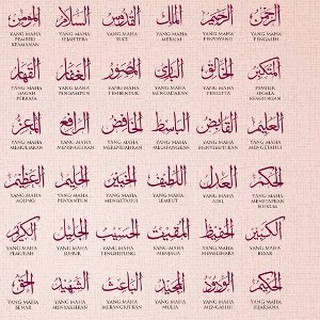 الرحمن الرحيم الملك القدوس السلام المؤمن
YANG MAHA YANG MAHA YANG MAHA YANG MAHA YANG MAHA YANG MAHA
PENGASIH PENYAYANG MERAJAI SUCI SEJAHTERA PEMBERI
KEAMANAN
المتكبر الخالق البارئ المصور الغفار القهار
PEMILIK YANG MAHA YANG MAHA YANG MAHA YANG MAHA YANG MAHA
SEGALA PENCIPTA PEMBENTUK PENGAMPUN
KEAGUNGAN PERKASA
العليم القابض الباسط الخافض الرافع المعز
YANG MAHA YANG MAHA YANG MAHA YANG MAHA YANG MAHA YANG MAHA
MENGETAHUI MENYEMPITKAN MELAPANGKAN MERENDAHKAN MENINGGIKAN MEMULIAKAN
الحكم العدل اللطيف الخبير الحليم العظيم
YANG MAHA YANG MAHA YANG MAHA YANG MAHA YANG MAHA YANG MAHA
MENETAPKAN ADIL LEMBUT MENGETAHUI PENYANTUN AGUNG
HUKUM
الكبير الحفيظ المقيت الحسيب الجليل الكريم
YANG MAHA YANG MAHA YANG MAHA YANG MAHA YANG MAHA YANG MAHA
BESAR MEMELIHARA LUHUR PEMURAH
الحكيم الودود المجيد الباعث الشهيد الحق
YANG MAHA YANG MAHA YANG MAHA YANG MAHA YANG MAHA YANG MAHA
BIJAKSANA MENGASIHI MULIA MEMBANGKITKAN MENYAKSIKAN BENAR